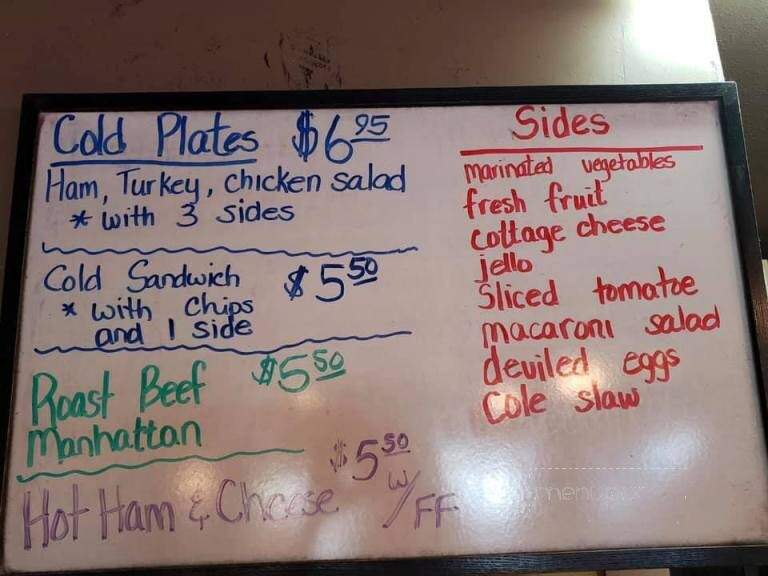 Cold Plates $6 95
Ham, Turkey, chicken salad
* with 3 sides
Cold Sandwich $5 50
* with Chips
and 1 side
Roast Beef $5 50
Manhattan
Hot Ham & Cheese $5 50 w/FF
Sides
marinated vegetables
fresh fruit
cottage cheese
jello
Sliced tomatoe
macaroni salad
deviled eggs
Cole slaw